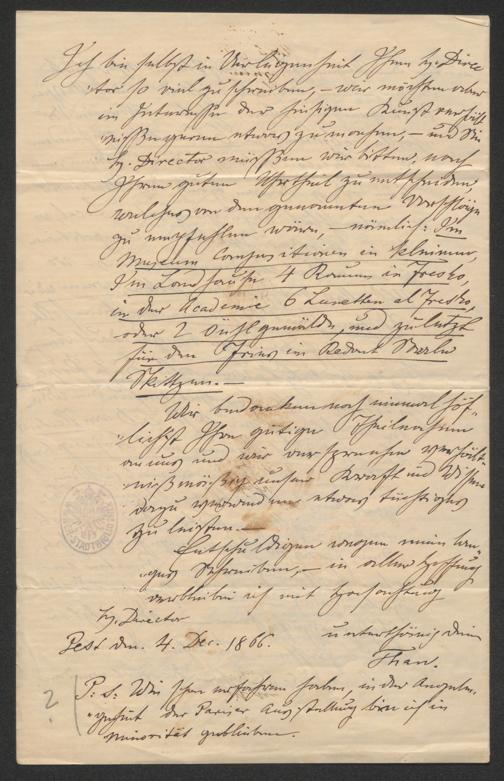 Ich bin selbst in Verlegenheit Ihnen H. Direc
tor so viel zu schreiben, – wir möchten aber
im Interesse der hiesigen Kunstverhält
nisse gerne etwas zu machen, – und Sie
H. Director müssen wir bitten, nach
Ihrem guten Urtheil zu entscheiden,
welches von den genannten Vorschläge
zu empfehlen wären, – nämlich: Im
Museum Compositionen in kleinem,
Im Landhause 4 Räume in fresko,
in der Academie 6 Lunetten al fresko,
oder 2 Öuhlgemälde, und zuletzt
für den Fries im Redout Saale
Skitzzen. –
Wir bedanken noch einmal höf-
lichst Ihre gütige Theilnahme
an uns und wir versprechen verhält-
nißmäßig unser Kraft und Wissen
dazu verwenden etwas tüchtiges
zu leisten. –
Entschuldigen wegen mein lan-
ges Schreiben, – in aller Hoffnung
verbleibe ich mit Hochachtung
H. Director
Pest den. 4. Dec. 1866.
unterthänig
Than.
P. S. Wie schon erfahren haben, in der Angele-
genheit der Pariser Ausstellung bin ich in
minorität geblieben.
?